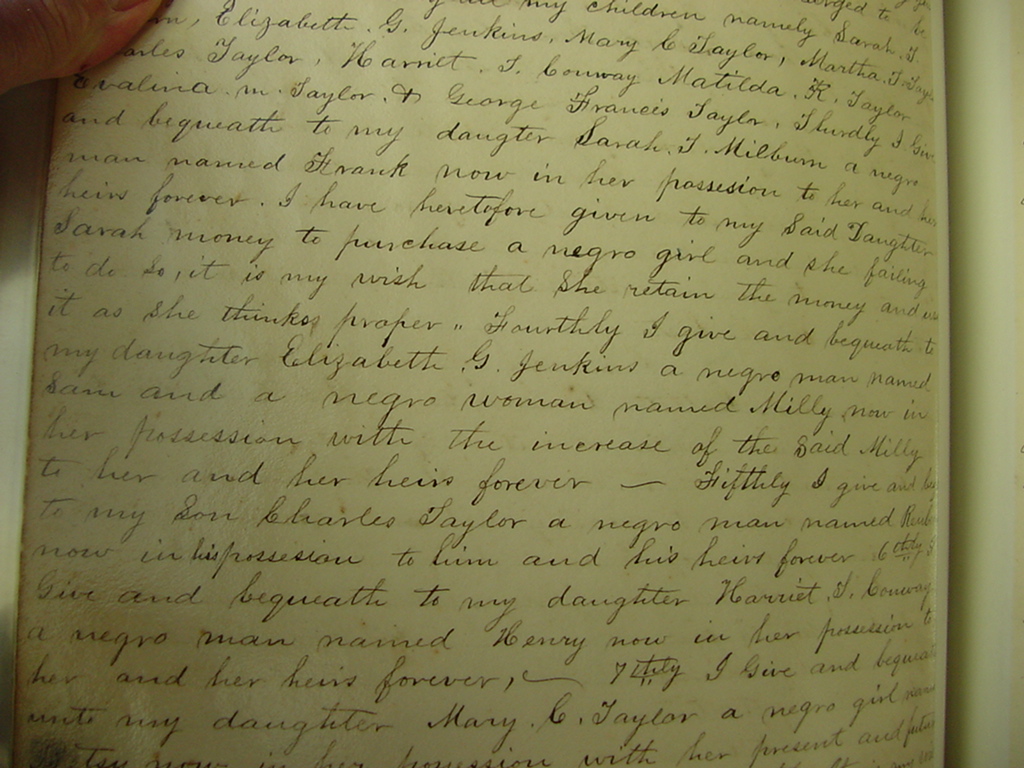 my children namely Sarah J.
Elizabeth. G. Jenkins, Mary C Taylor, Martha. J
Taylor, Harriet. J. Conway Matilda. K. Taylor
Evalina. M. Taylor. & George Francis Taylor, Thirdly I Give
and bequeath to my daughter Sarah. J. Milburn a negro
man named Frank now in her possesion to her and her
heirs forever. I have heretofore given to my Said Daughter
Sarah money to purchase a negro girl and she failing
to do so, it is my wish that she retain the money and use
it as she thinks proper " Fourthly I give and bequeath to
my daughter Elizabeth. G. Jenkins a negro man named
Sam and a negro woman named Milly now in
her possession with the increase of the Said Milly
to her and her heirs forever — Fifthly I give and
to my Son Charles Taylor a negro man named
now in his possesion to him and his heirs forever 6thly I
Give and bequeath to my daughter Harriet. J. Conway
a negro man named Henry now in her possesion to
her and her heirs forever, — 7thly I Give and bequeath
unto my daughter Mary. C. Taylor a negro girl
now in her possession with her present and